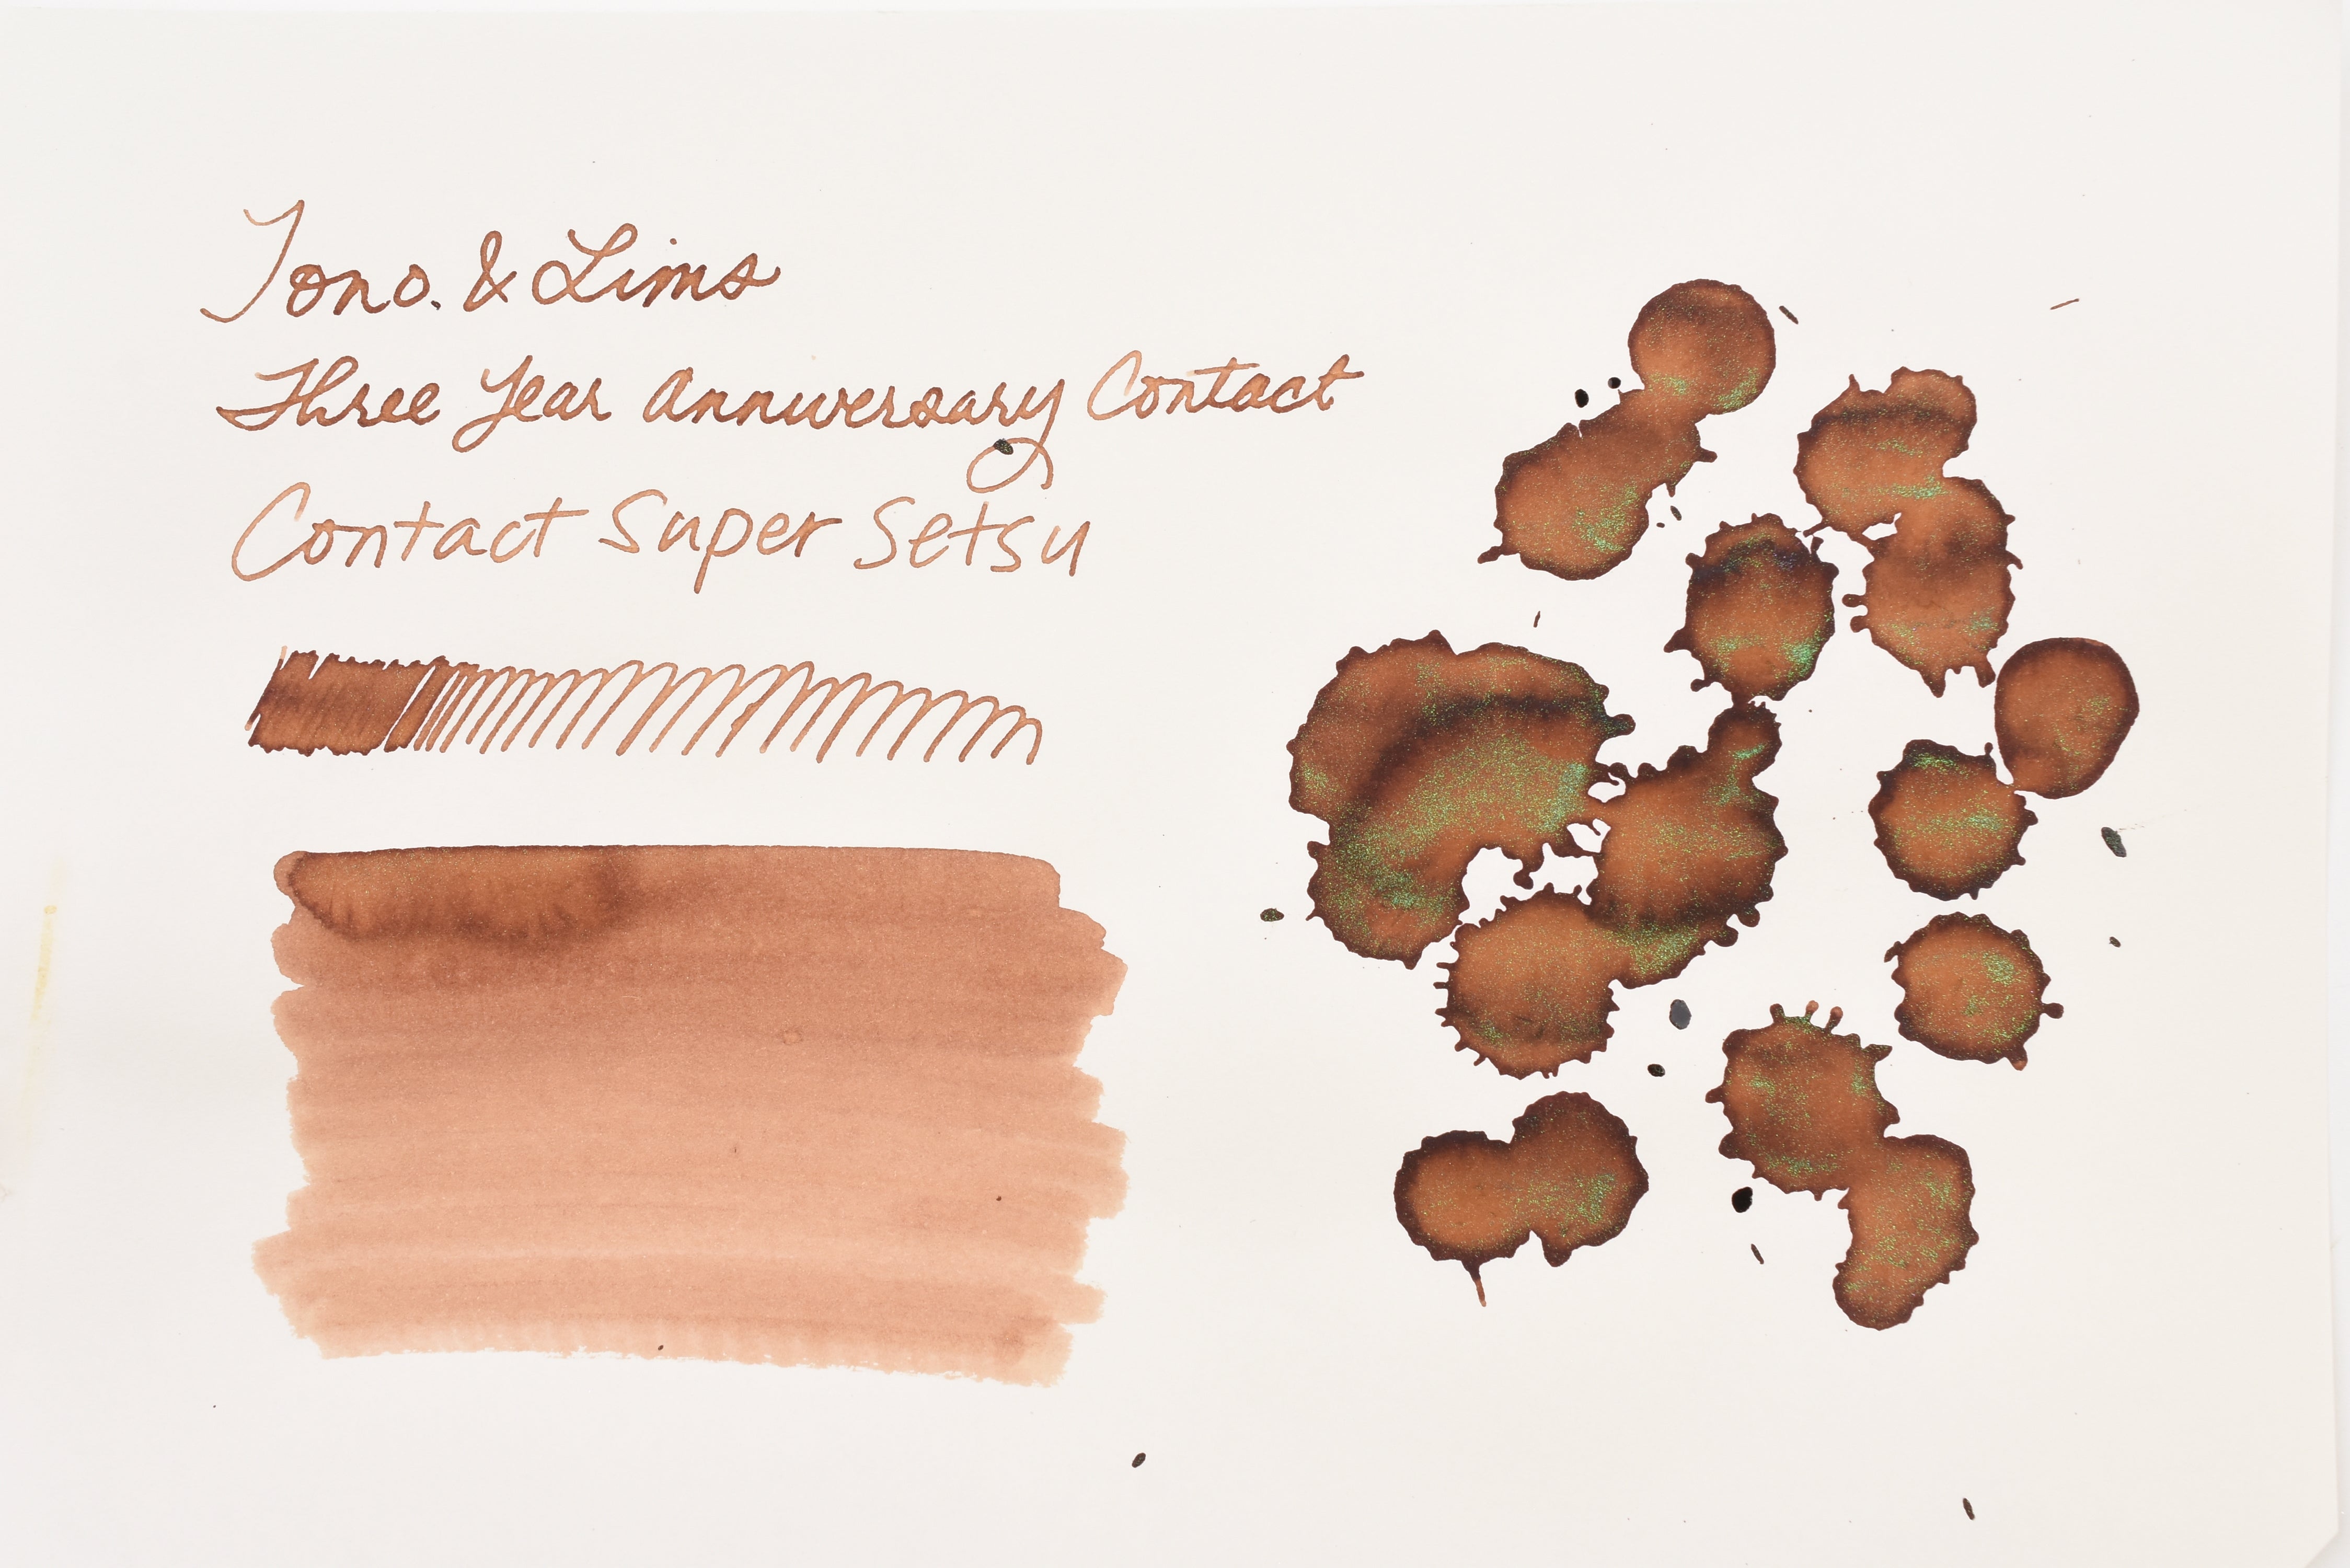 Tono. & Lims
Three Year Anniversary Contact
Contact Super Setsu